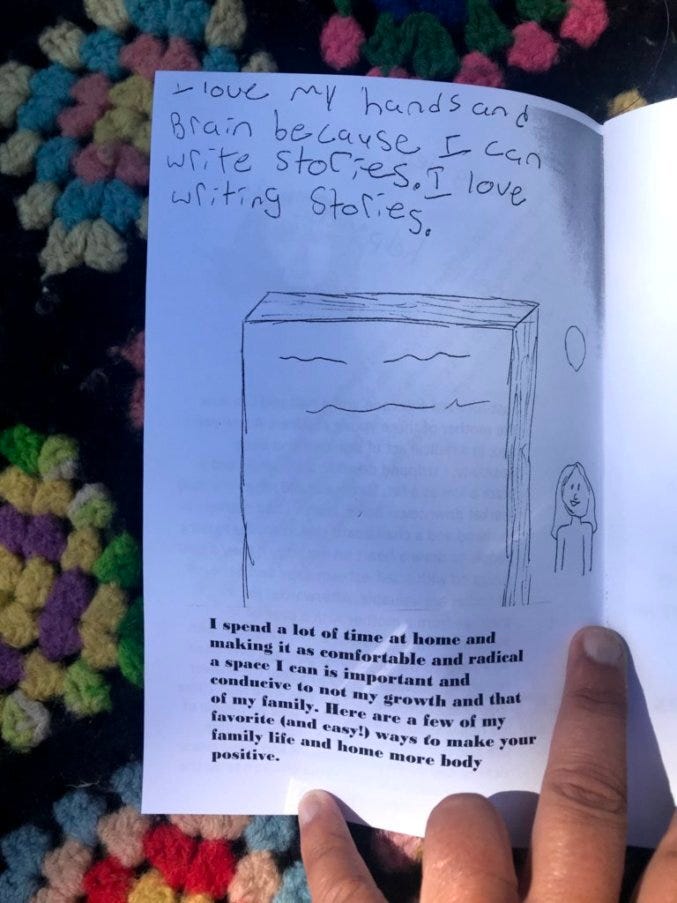 I love my hands and
Brain because I can
write stories. I love
writing stories.
I spend a lot of time at home and
making it as comfortable and radical
a space I can is important and
conducive to not my growth and that
of my family. Here are a few of my
favorite (and easy!) ways to make your
family life and home more body
positive.